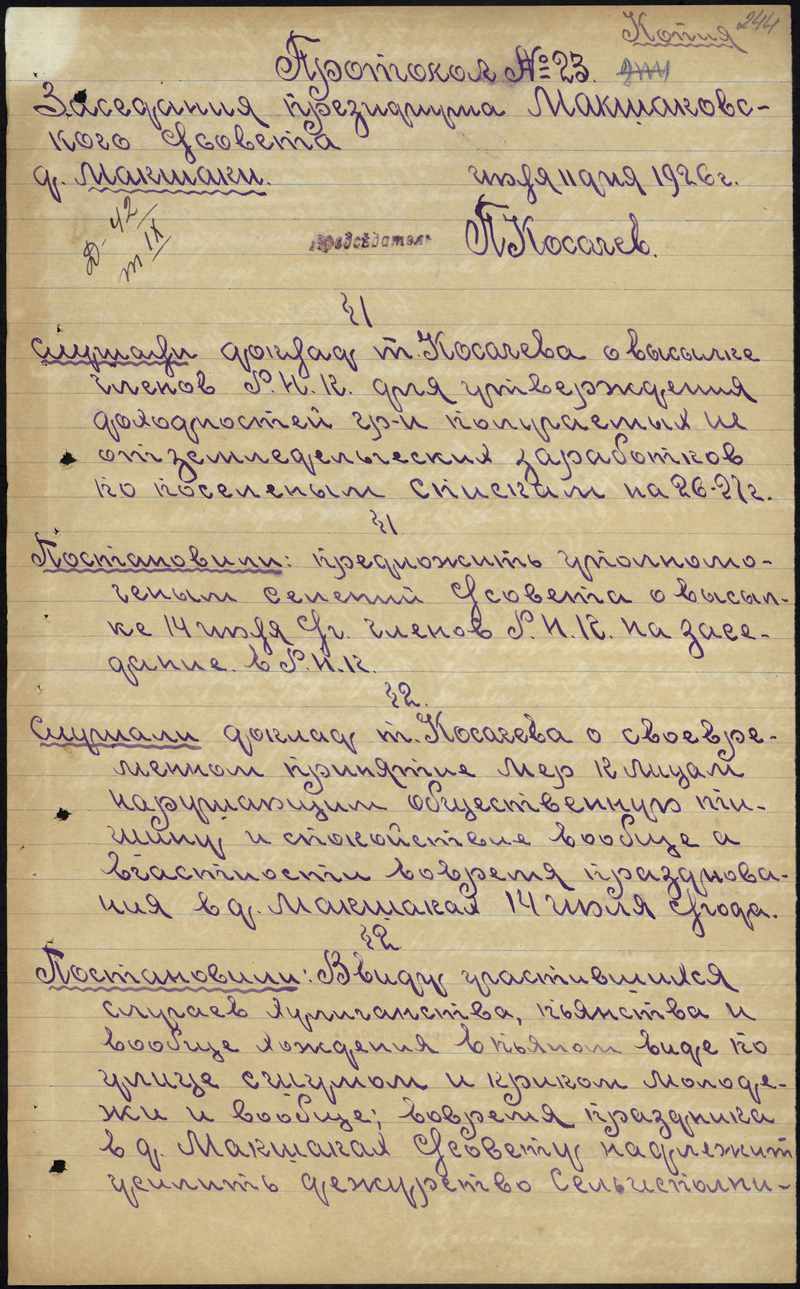 Копия 244
Протокол № 23.
Заседания президиума Макшаковс-
кого С/совета
д. Макшаки. июля 11 дня 1926 г.
Д-42
т IX
Председатель П Косачев.
§ 1
Слушали доклад т. Косачева о высылке
членов Р.Н.К. для утверждения
доходностей гр-н получаемых не
от земледельческих заработков
по поселеным спискам на 26-27 г.
§ 1
Постановили: предложить уполномо-
ченым селений С/совета о высыл-
ке 14 июля С/г. членов Р.Н.К. на засе-
дание. в Р.Н.К.
§ 2.
Слушали доклад т. Косачева о своевре-
менном принятие мер к лицам
нарушающим общественную ти-
шину и спокойствие вообще а
вчастности вовремя празднова-
ния в д. Макшаках 14 июля С/года.
§ 2
Постановили: Ввиду участившихся
случаев хулиганства, пьянства и
вообще хождения в пьяном виде по
улице сшумом и криком молоде-
жи и вообще; вовремя праздника
в д. Макшаках С/совету надлежит
усилить дежурство Сельисполни-